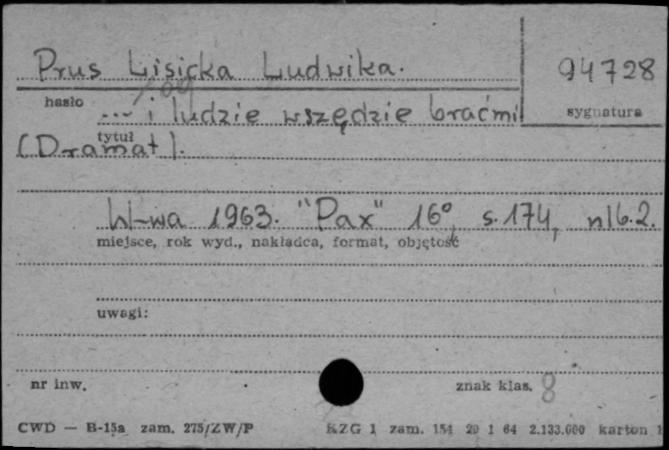 Prus Lisicka Ludwika. 94728
hasło sygnatura
... i ludzie wszędzie braćmi
tytuł
(Dramat).
W-wa 1963. "Pax" 16°, s. 174, nlb. 2.
miejsce, rok wyd., nakładca, format, objętość
uwagi:
nr inw. znak klas. 8
CWD — B-15a zam. 275/ZW/P RZG 1 zam. 154 29 1 64 2.133.000 karton 1